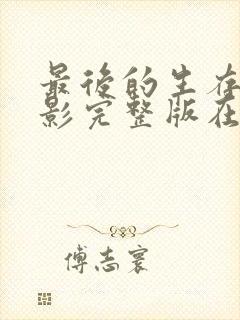 最後的生存
影完整版在
傅志寰